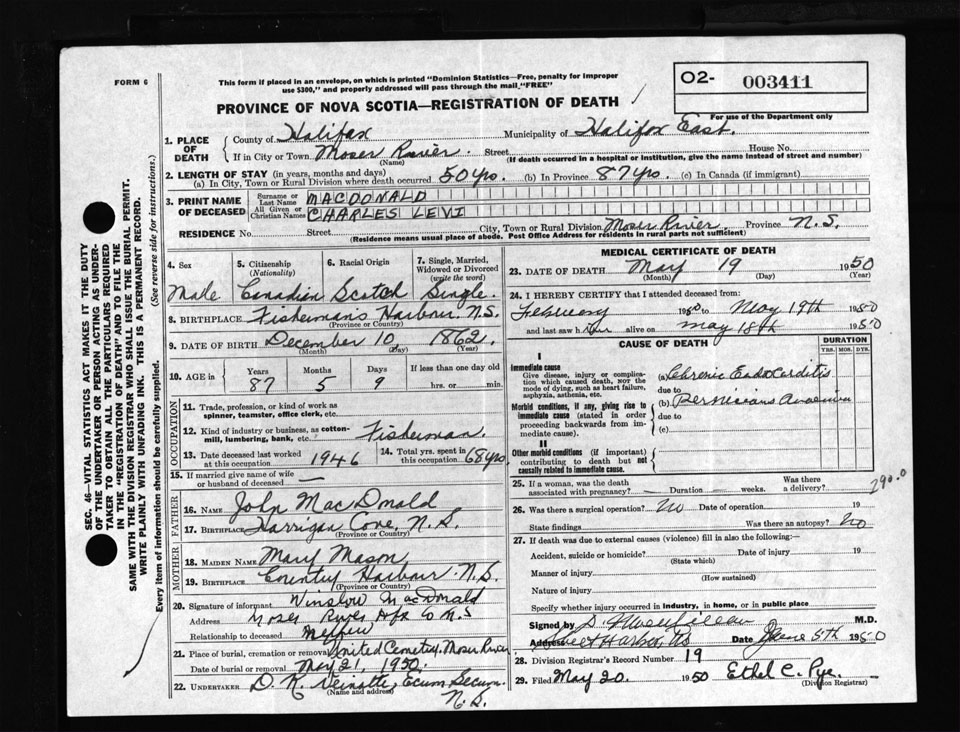 FORM 6
This form if placed in an envelope, on which is printed "Dominion Statistics—Free, penalty for improper
use $300," and properly addressed will pass through the mail "FREE"
O2- 003411
PROVINCE OF NOVA SCOTIA—REGISTRATION OF DEATH
For use of the Department only
1. PLACE OF DEATH { County of Halifax Municipality of Halifax East.
If in City or Town Moser River. Street House No.
(Name) (If death occurred in a hospital or institution, give the name instead of street and number)
2. LENGTH OF STAY (in years, months and days)
(a) In City, Town or Rural Division where death occurred 50 yrs. (b) In Province 87 yrs. (c) In Canada (if immigrant)
3. PRINT NAME OF DECEASED { Surname or Last Name MACDONALD
All Given or Christian Names CHARLES LEVI
RESIDENCE No. Street City, Town or Rural Division Moser River. Province N.S.
(Residence means usual place of abode. Post Office Address for residents in rural parts not sufficient)
4. Sex 5. Citizenship (Nationality) 6. Racial Origin 7. Single, Married, Widowed or Divorced (write the word)
Male Canadian Scotch Single.
8. BIRTHPLACE Fisherman's Harbour. N.S.
(Province or Country)
9. DATE OF BIRTH December 10, 1862.
(Month) (Day) (Year)
10. AGE in { Years Months Days If less than one day old
87 5 9 hrs. or min.
OCCUPATION
11. Trade, profession, or kind of work as spinner, teamster, office clerk, etc.
12. Kind of industry or business, as cotton-mill, lumbering, bank, etc. Fisherman.
13. Date deceased last worked at this occupation 1946 14. Total yrs. spent in this occupation 68 yrs.
15. If married give name of wife or husband of deceased —
FATHER
16. NAME John MacDonald
17. BIRTHPLACE Harrigan Cove, N.S.
(Province or Country)
MOTHER
18. MAIDEN NAME Mary Mason
19. BIRTHPLACE Country Harbour N.S.
(Province or Country)
20. Signature of informant Winslow MacDonald
Address Moser River Hfx Co N.S
Relationship to deceased Nephew
21. Place of burial, cremation or removal United Cemetery. Moser River
Date of burial or removal May 21, 1950.
22. UNDERTAKER D. R. Ecum Secum.
(Name and address) N.S.
MEDICAL CERTIFICATE OF DEATH
23. DATE OF DEATH May 19 1950
(Month) (Day) (Year)
24. I HEREBY CERTIFY that I attended deceased from:
February 1950 to May 19th 1950
and last saw h alive on May 18th 1950
CAUSE OF DEATH DURATION
YRS. MOS. DYS.
I
Immediate cause
Give disease, injury or complication which caused death, not the mode of dying, such as heart failure, asphyxia, asthenia, etc.
(a) Chronic Endocarditis
due to
Morbid conditions, if any, giving rise to immediate cause (stated in order proceeding backwards from immediate cause).
(b) Pernicious Anaemia
due to
(c)
II
Other morbid conditions (if important) contributing to death but not causally related to immediate cause.
25. If a woman, was the death associated with pregnancy? — Duration — weeks. Was there a delivery? 290.0
26. Was there a surgical operation? No Date of operation 19
State findings Was there an autopsy? No
27. If death was due to external causes (violence) fill in also the following:—
Accident, suicide or homicide? Date of injury 19
(State which)
Manner of injury
(How sustained)
Nature of injury
Specify whether injury occurred in industry, in home, or in public place
Signed by M.D.
Address Sheet Harbor, NS Date June 5th 1950
28. Division Registrar's Record Number 19
29. Filed May 20. 1950 Ethel C. Pye.
(Division Registrar)
SEC. 46—VITAL STATISTICS ACT MAKES IT THE DUTY
OF THE UNDERTAKER OR PERSON ACTING AS UNDER-
TAKER TO OBTAIN ALL THE PARTICULARS REQUIRED
IN THE "REGISTRATION OF DEATH" AND TO FILE THE
SAME WITH THE DIVISION REGISTRAR WHO SHALL ISSUE THE BURIAL PERMIT.
WRITE PLAINLY WITH UNFADING INK. THIS IS A PERMANENT RECORD.
Every item of information should be carefully supplied. (See reverse side for instructions.)